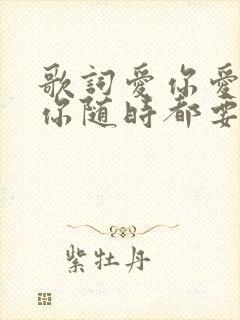 歌詞愛你愛
你随時都要
紫牡丹